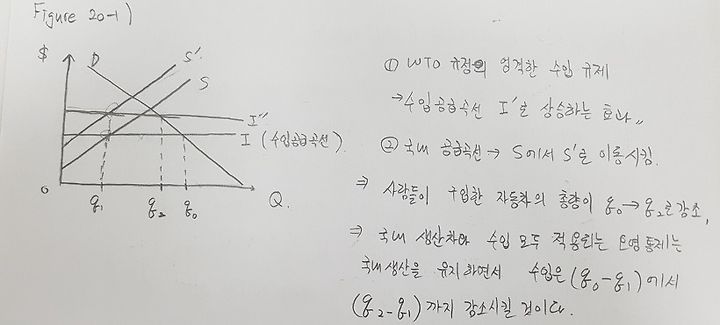 Figure 20-1)
$
D
S'
S
I''
I (수입공급곡선)
0
q₁
q₂
q₀
Q.
① WTO 규정의 엄격한 수입 규제
→ 수입공급곡선 I'로 상승하는 효과〃
② 국내 공급곡선 → S에서 S'로 이동시킴.
⇒ 사람들이 구입한 자동차의 총량이 q₀→q₂로 감소,
⇒ 국내 생산차와 수입 모두 적용되는 오염통제는
국내생산을 유지하면서 수입은 (q₀-q₁)에서
(q₂-q₁)까지 감소시킬 것이다.